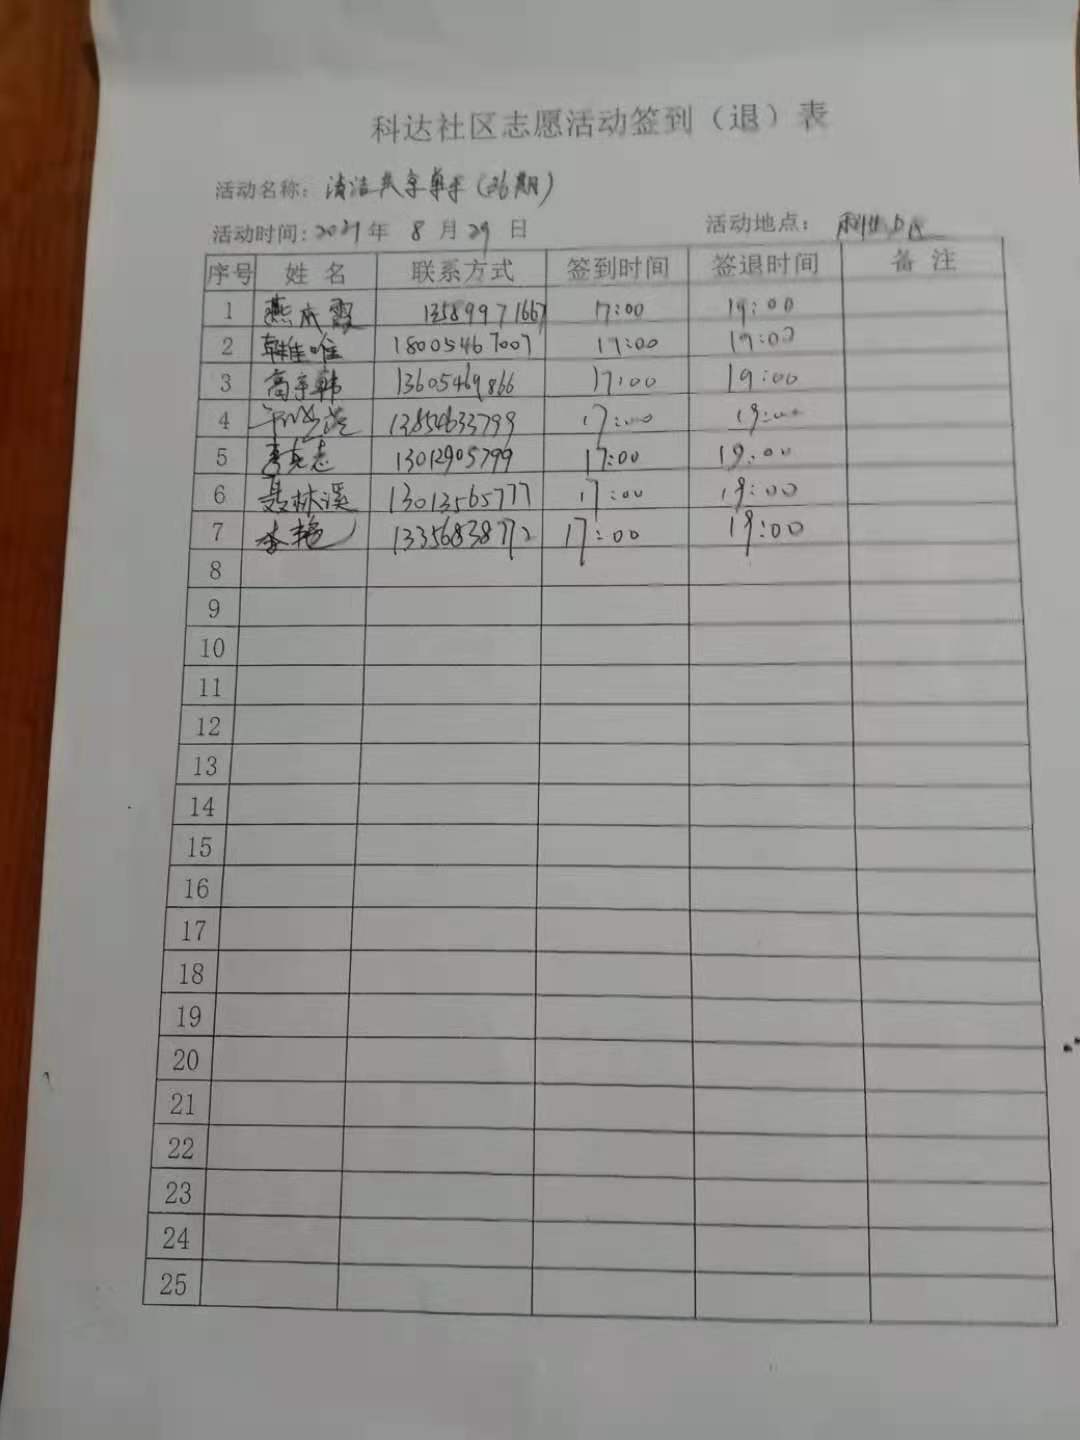 科达社区志愿活动签到（退）表
活动名称：清洁共享单车（36期）
活动时间：2021年 8 月 29 日 活动地点：
序号 姓 名 联系方式 签到时间 签退时间 备 注
1 燕 霞 13589971667 17:00 19:00
2 韩唯 18005467007 17:00 19:00
3 高宇韩 13605469866 17:00 19:00
4 13854633799 17:00 19:00
5 李 志 13012905799 17:00 19:00
6 聂林溪 13013565777 17:00 19:00
7 李艳 13356838772 17:00 19:00
8
9
10
11
12
13
14
15
16
17
18
19
20
21
22
23
24
25